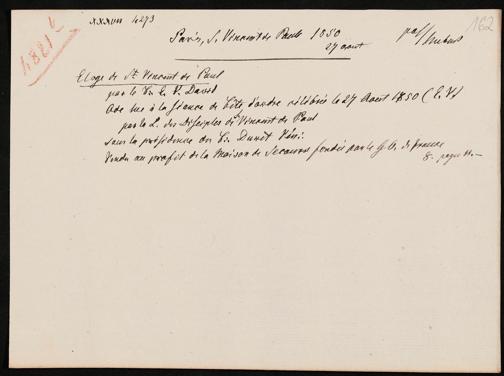 XXXVII 4273
162
Paris, S. Vincent de Paul 1850
27 aout
Eloge de St Vincent de Paul
par le F∴ L. V. David
Ode lue à la séance de fête d'ordre célébrée le 27 Aout 1850 (E. V.)
par la L. des Disciples de St Vincent de Paul
sous la présidence du F∴ Dunet Vén∴
Vendu au profit de la Maison de Secours fondée par le G. O. de France
8. pages